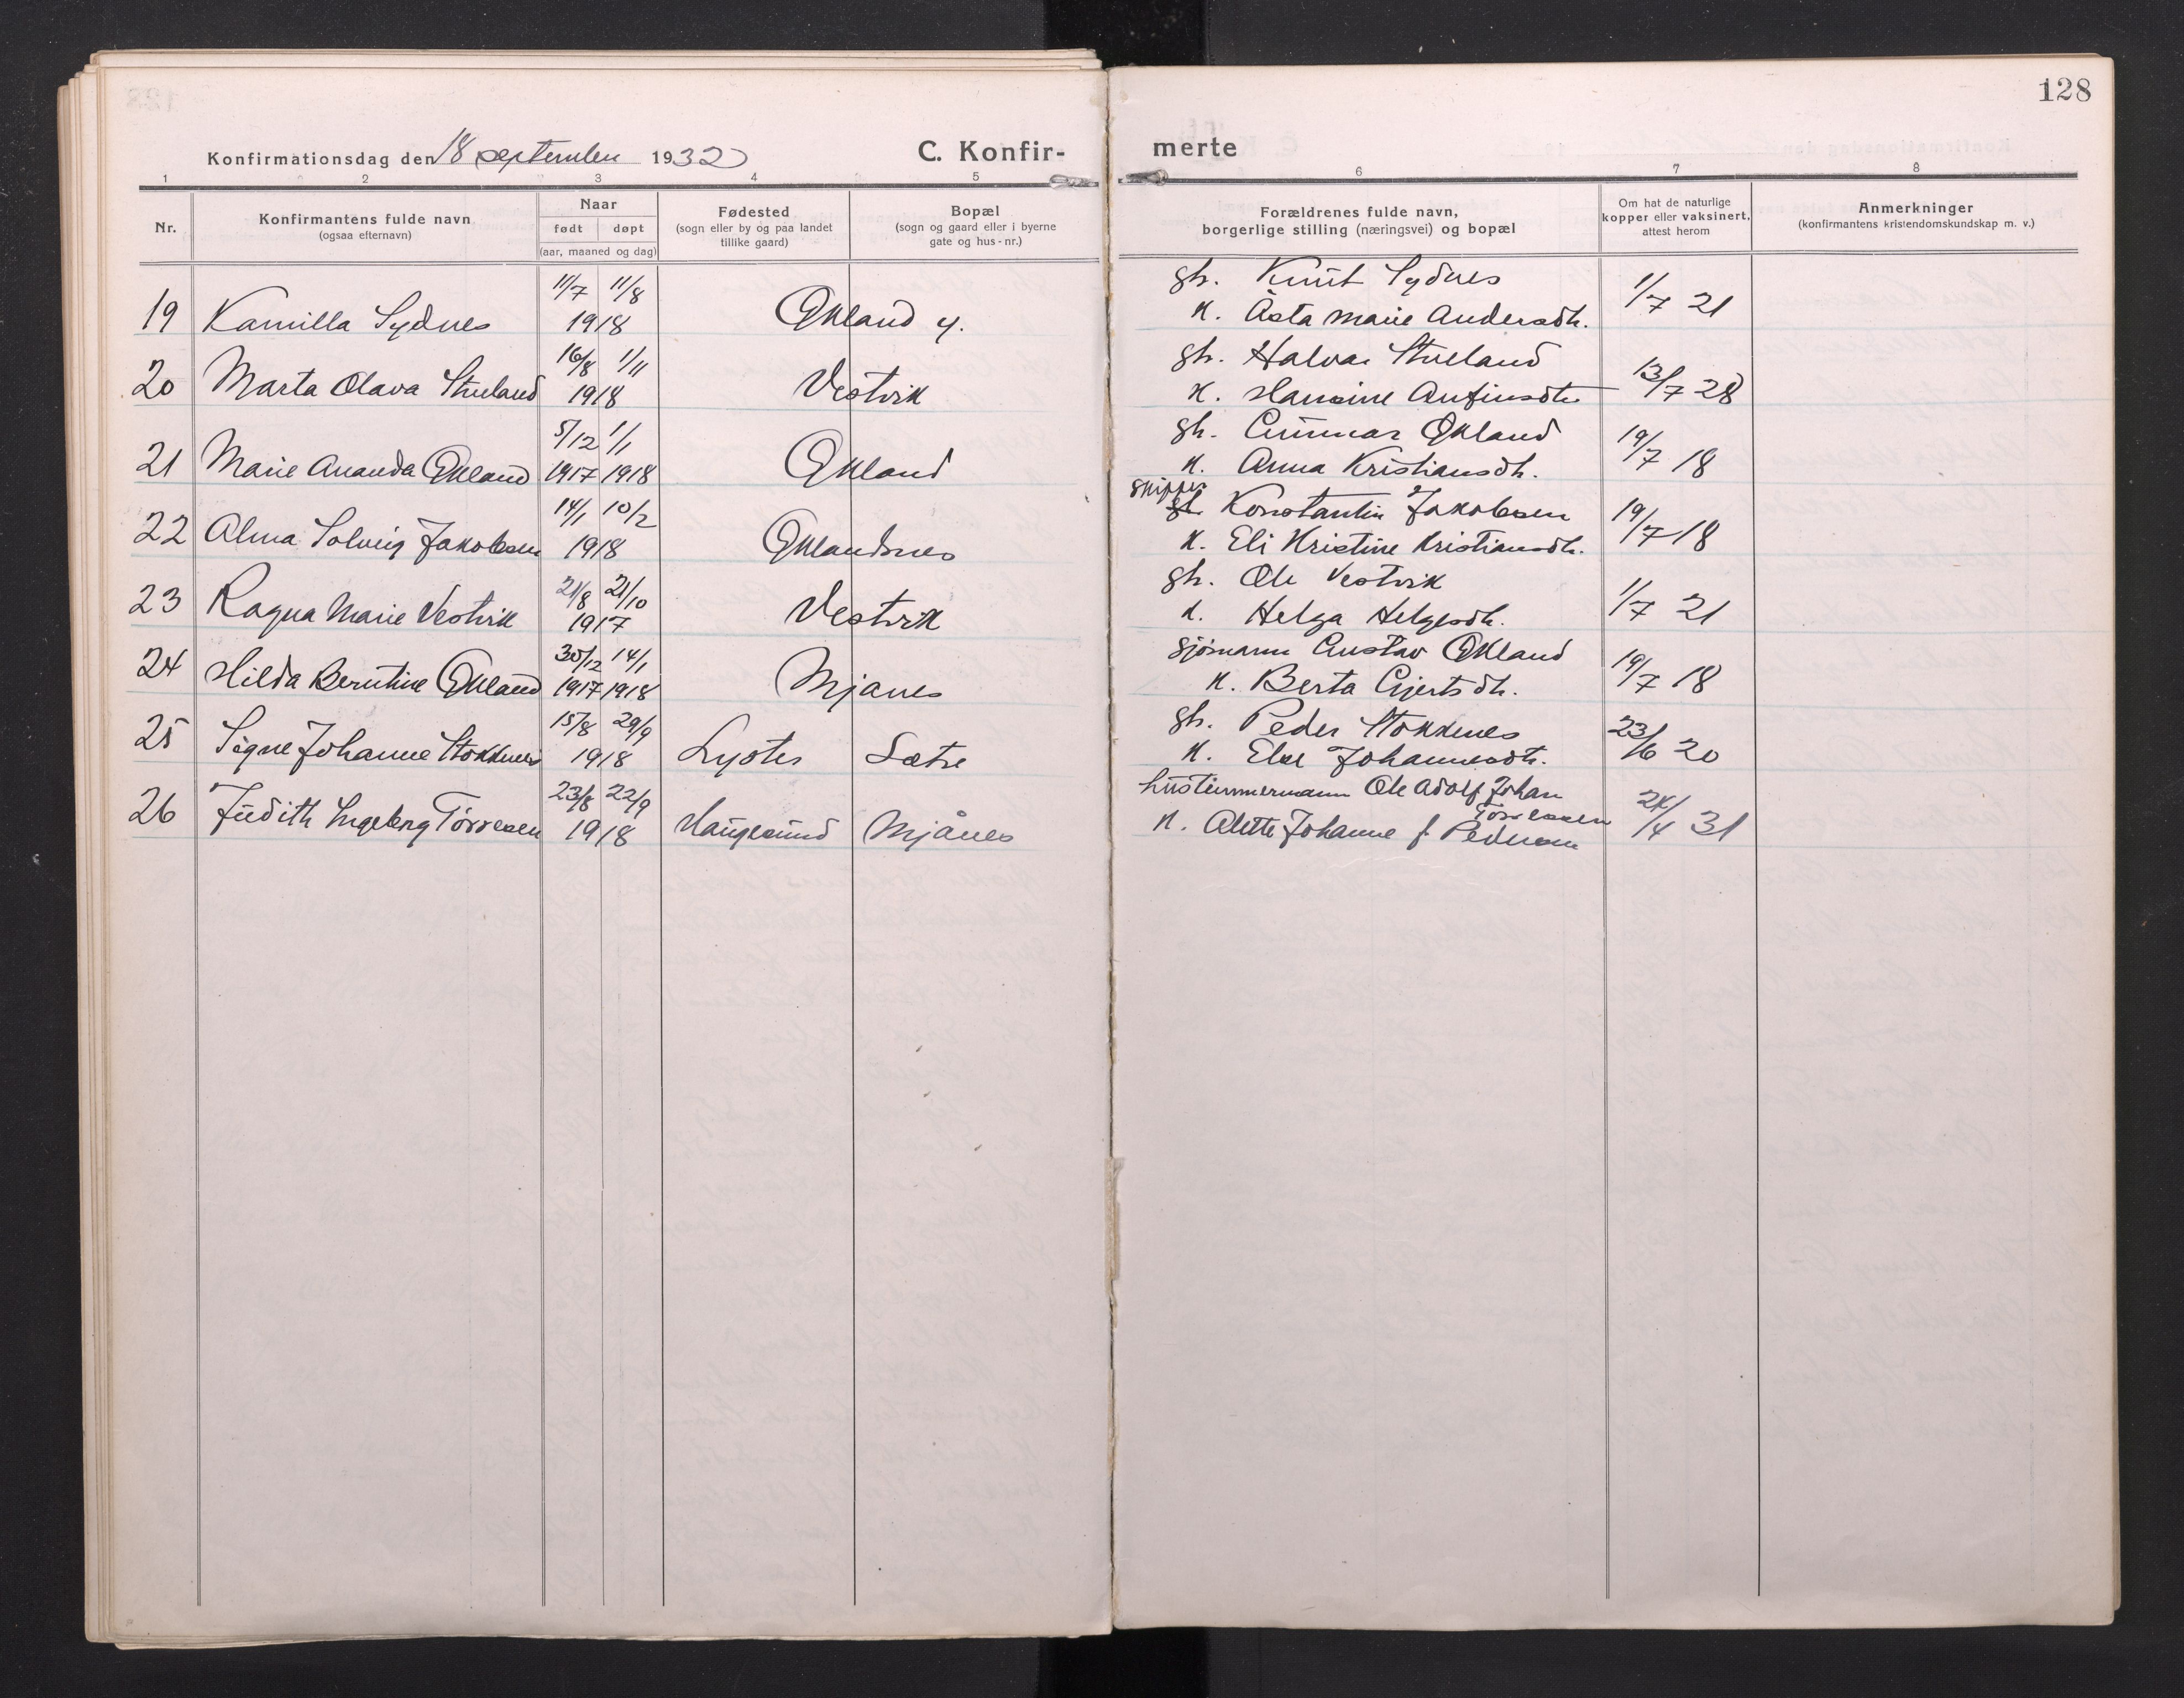 128
Konfirmationsdag den 18 september 1932
C. Konfirmerte
1 2 3 4 5 6 7 8
Nr.
Konfirmantens fulde navn
(ogsaa efternavn)
Naar
født døpt
(aar, maaned og dag)
Fødested
(sogn eller by og paa landet
tillike gaard)
Bopæl
(sogn og gaard eller i byerne
gate og hus-nr.)
Forældrenes fulde navn,
borgerlige stilling (næringsvei) og bopæl
Om hat de naturlige
kopper eller vaksinert,
attest herom
Anmerkninger
(konfirmantens kristendomskundskap m. v.)
11/7 11/8 gbr. Knut Sydnes
19 Kamilla Sydnes 1918 Økland y. K. Åsta Marie Andersdtr. 1/7 21
16/8 1/11 gbr. Halvar Stueland
20 Marta Olava Stueland 1918 Vestvik K. Hansine Anfinsdtr. 13/7 28
5/12 1/1 gbr. Gunnar Økland
21 Marie Ananda Økland 1917 1918 Økland K. Anna Kristiansdtr. 19/7 18
14/1 10/2 skipper gbr. Konstantin Jakobsen
22 Alma Solveig Jakobsen 1918 Øklandsnes K. Eli Kristine Kristiansdtr. 19/7 18
21/8 21/10 gbr. Ole Vestvik
23 Ragna Marie Vestvik 1917 Vestvik K. Helga Helgesdtr. 1/7 21
30/12 14/1 sjömann Gustav Økland
24 Hilda Berntine Økland 1917 1918 Mjanes K. Berta Gjertsdtr. 19/7 18
15/8 29/9 gbr. Peder Stokknes
25 Signe Johanne Stokknes 1918 Lyster Sætre K. Else Johannesdtr. 23/6 20
23/8 22/9 hustümmermann Ole Adolf Johan
Törresen
26 Judith Ingebrg Törresen 1918 Haugesund Mjånes K. Alette Johanne f. Pedersen 24/4 31